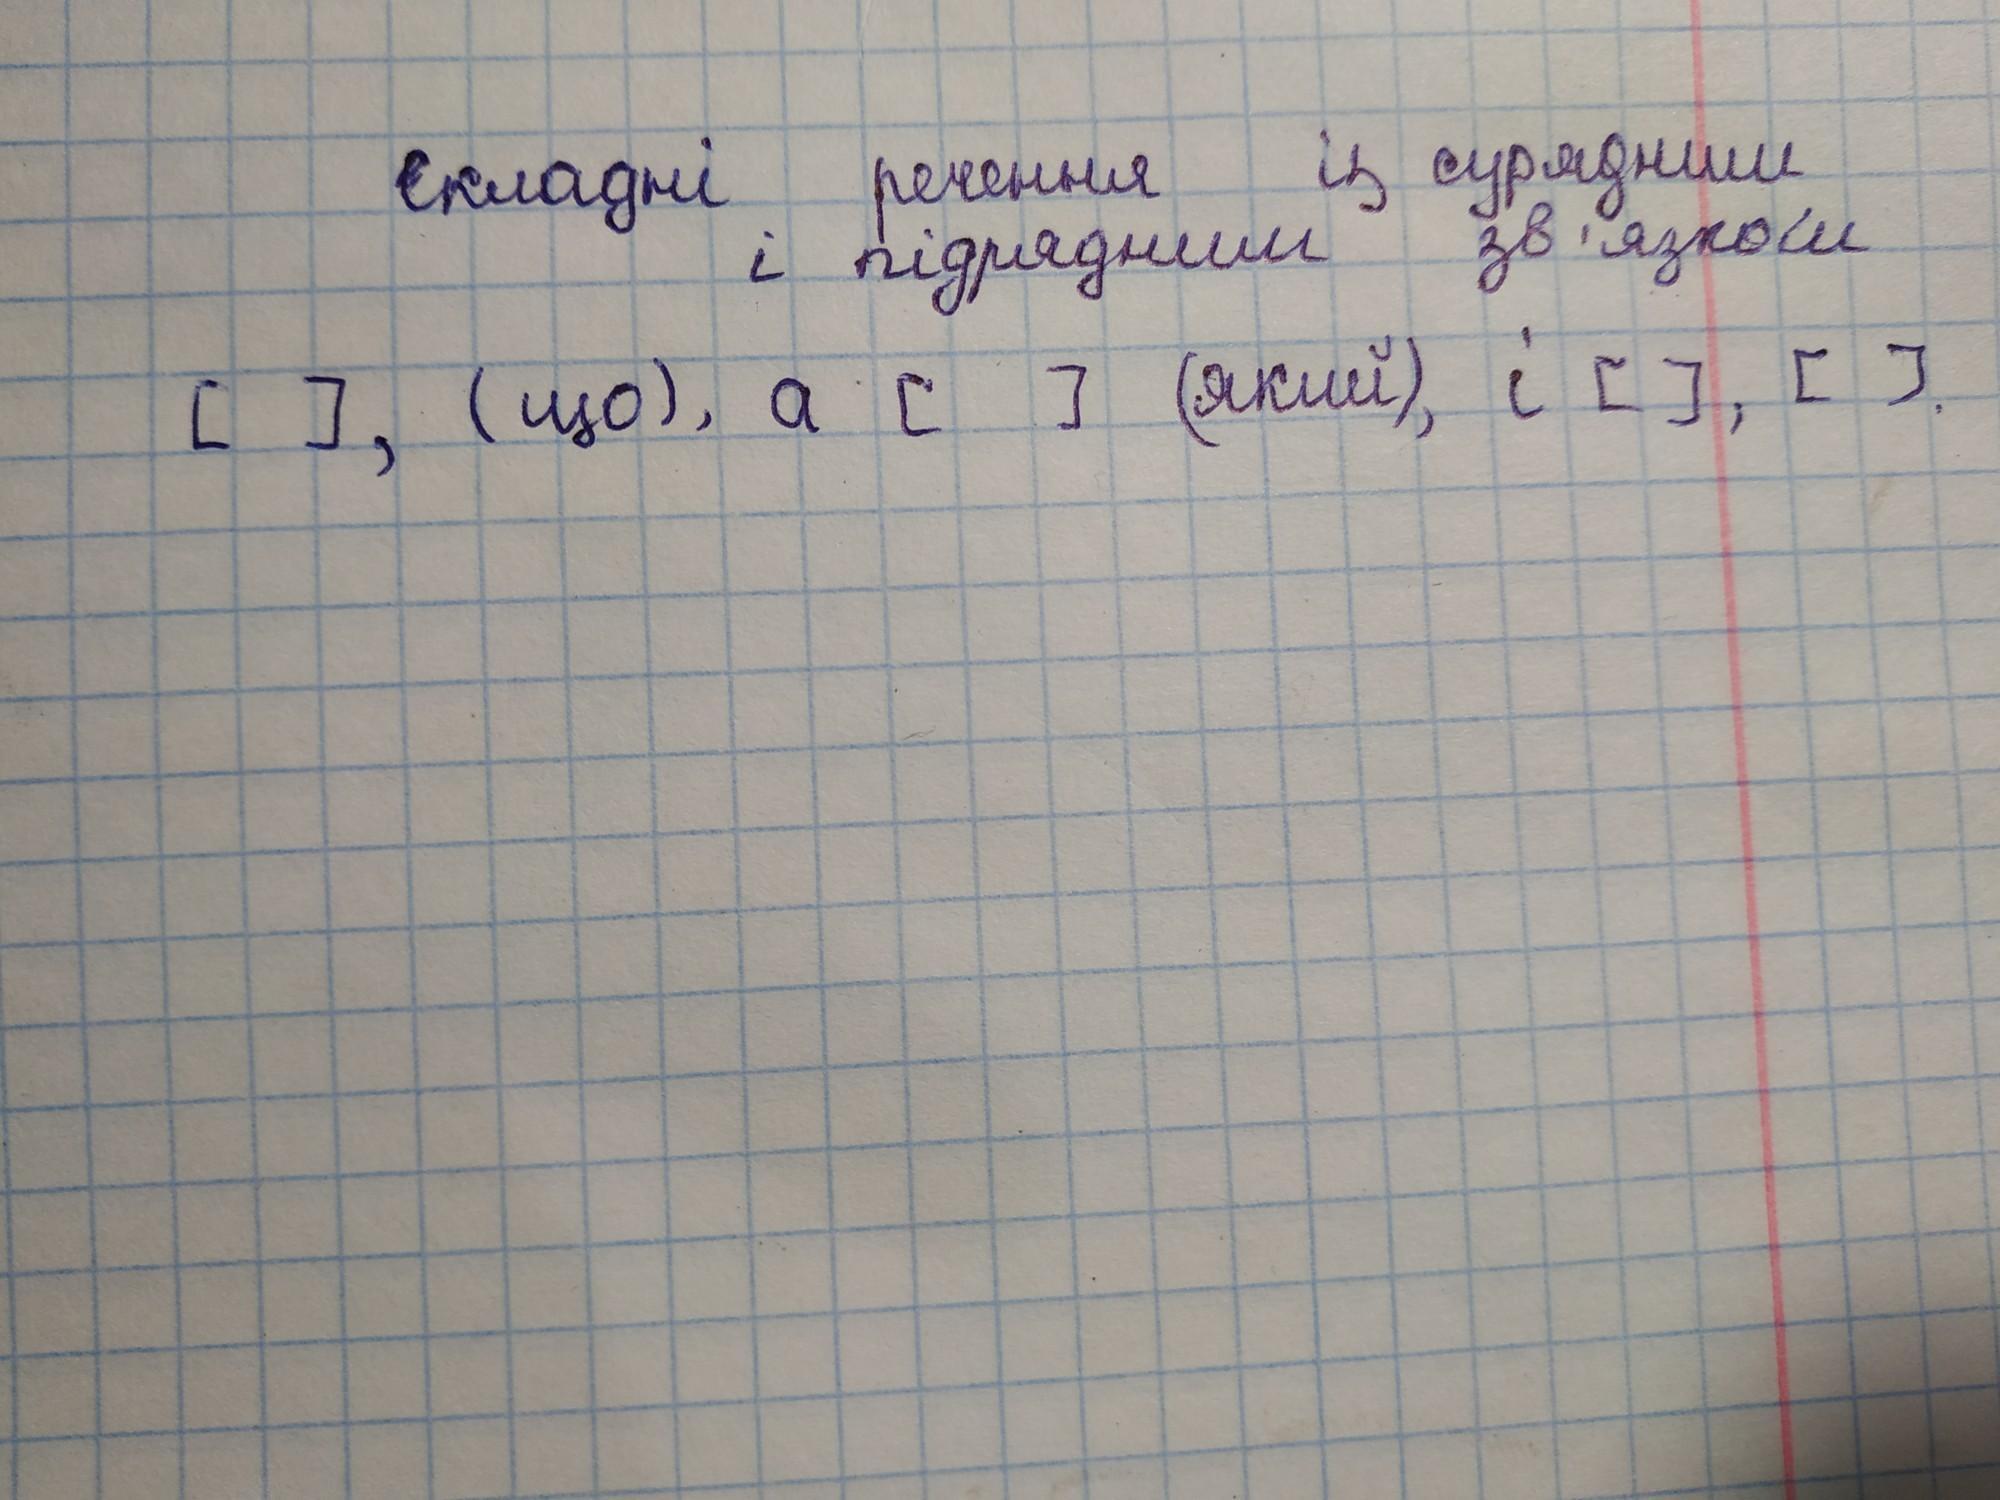 Складні речення із сурядним
і підрядним зв'язком
[ ], (що), а [ ] (який), і [ ], [ ].